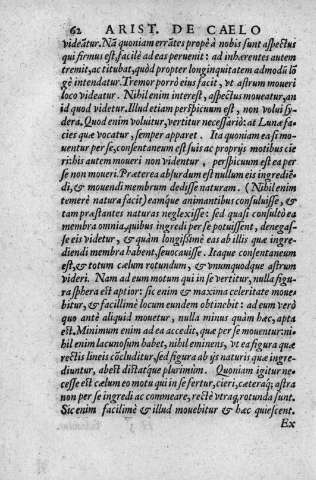 62 ARIST. DE CAELO
videātur. Nā quoniam errātes propè à nobis sunt aspectus
qui firmus est, facilè ad eas peruenit: ad inhærentes autem
tremit, ac titubat, quòd propter longinquitatem admodū lō
gè intendatur. Tremor porrò eius facit, vt astrum moueri
loco videatur. Nihil enim interest, aspectus moueatur, an
id quod videtur. Illud etiam perspicuum est, non volui sy-
dera. Quod enim voluitur, vertitur necessariò: at Lunæ fa-
cies quæ vocatur, semper apparet. Ita quoniam ea si mo-
uentur per se, consentaneum est suis ac proprijs motibus cie
ri: his autem moueri non videntur, perspicuum est ea per
se non moueri. Præterea absurdum est nullum eis ingrediē-
di, & mouendi membrum dedisse naturam. (Nihil enim
temerè natura facit) eamque animantibus consuluisse, &
tam præstantes naturas neglexisse: sed quasi consultò ea
membra omnia, quibus ingredi per se potuissent, denegas-
se eis videtur, & quàm longissimè eas ab illis quæ ingre-
diendi membra habent, seuocauisse. Itaque consentaneum
est, & totum cælum rotundum, & vnumquodque astrum
videri. Nam ad eum motum qui in se vertitur, nulla figu-
ra sphæra est aptior: sic enim & maxima celeritate moue-
bitur, & facillimè locum eundem obtinebit: ad eum verò
quo antè aliquid mouetur, nulla minus quàm hæc, apta
est. Minimum enim ad ea accedit, quæ per se mouentur: ni-
hil enim lacunosum habet, nihil eminens, vt ea figura quæ
rectis lineis cōcluditur, sed figura ab ijs naturis quæ ingre-
diuntur, abest distatque plurimùm. Quoniam igitur ne-
cesse est cælum eo motu qui in se fertur, cieri, cæteraq; astra
non per se ingredi ac commeare, rectè vtraq; rotunda sunt.
Sic enim facilimè & illud mouebitur & hæc quiescent.
Ex